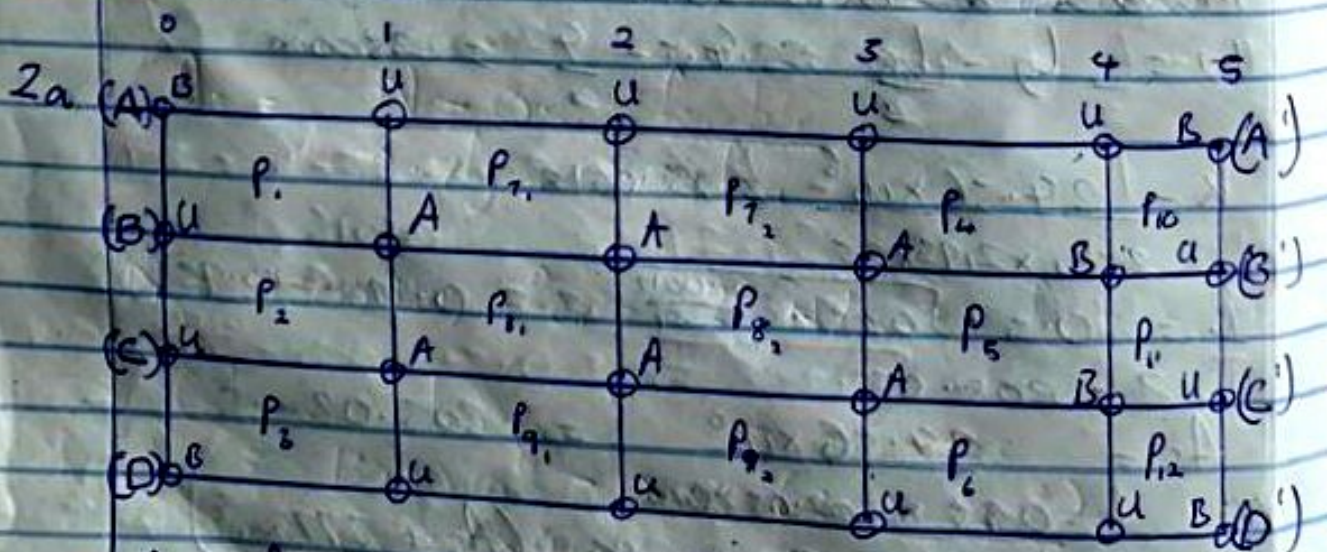 0 1 2 3 4 5
2a (A) B U U U U B (A')
P1 P7₁ P7₂ P4 P10
(B) U A A A B U (B')
P2 P8₁ P8₂ P5 P11
(C) U A A A B U (C')
P3 P9₁ P9₂ P6 P12
(D) B U U U U B (D')